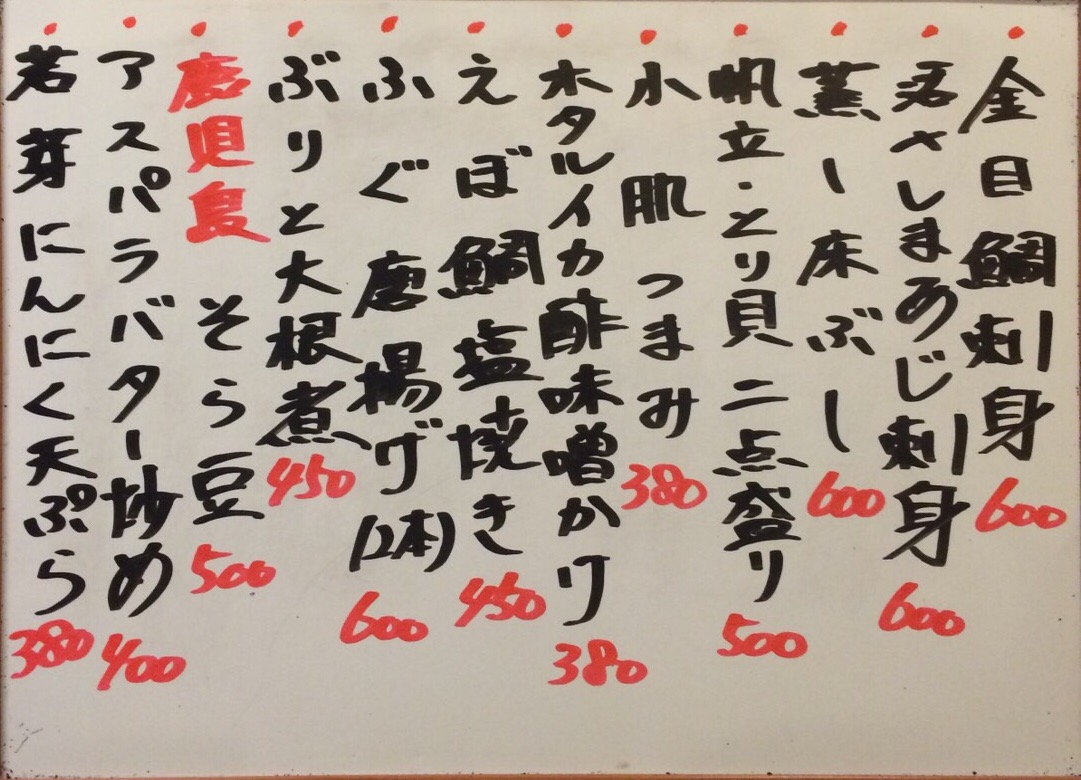 金目鯛刺身 600
活〆しまあじ刺身 600
蒸し床ぶし 600
帆立・とり貝 二点盛り 500
小肌 つまみ 380
ホタルイカ酢味噌かけ 380
えぼ鯛塩焼き 450
ふぐ唐揚げ(2本) 600
ぶりと大根煮 450
鹿児島 そら豆 500
アスパラバター炒め 400
若芽にんにく天ぷら 380